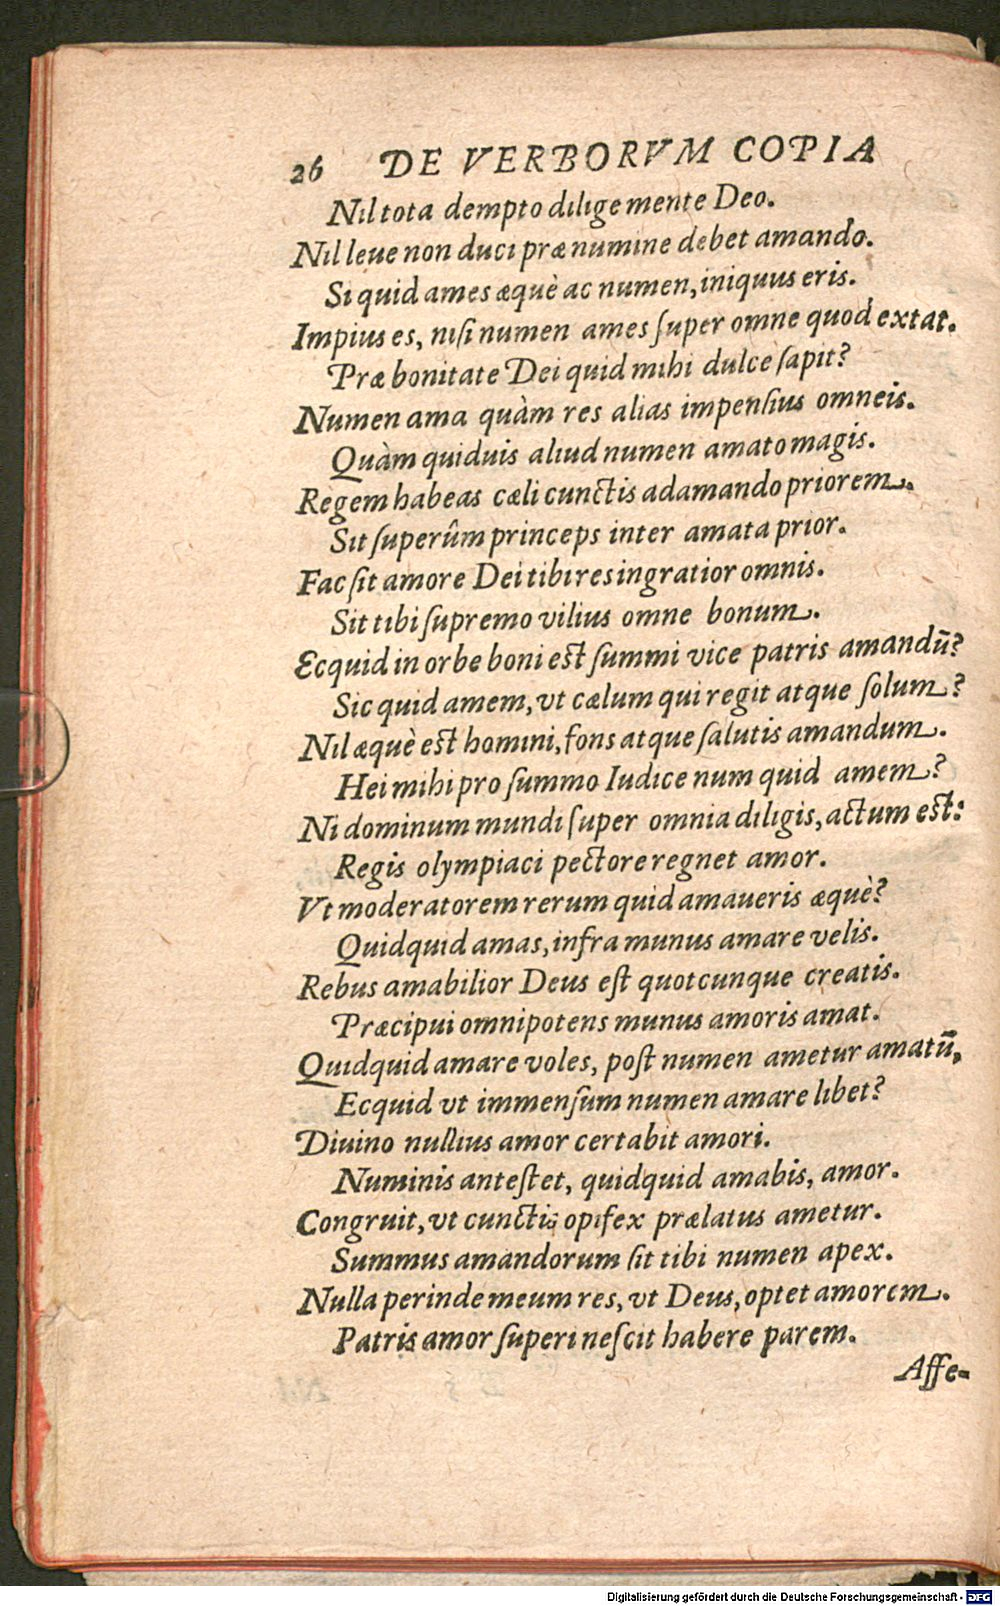 26 DE VERBORVM COPIA
Nil tota dempto dilige mente Deo.
Nil leue non duci præ numine debet amando.
Si quid ames æquè ac numen, iniquus eris.
Impius es, nisi numen ames ſuper omne quod extat.
Præ bonitate Dei quid mihi dulce ſapit?
Numen ama quàm res alias impensius omneis.
Quàm quiduis aliud numen amato magis.
Regem habeas cæli cunctis adamando priorem.
Sit ſuperûm princeps inter amata prior.
Fac ſit amore Dei tibi res ingratior omnis.
Sit tibi ſupremo vilius omne bonum.
Ecquid in orbe boni est ſummi vice patris amandū?
Sic quid amem, vt cælum qui regit atque ſolum?
Nil æquè est homini, fons atque ſalutis amandum.
Hei mihi pro ſummo Iudice num quid amem?
Ni dominum mundi ſuper omnia diligis, actum est:
Regis olympiaci pectore regnet amor.
Vt moderatorem rerum quid amaueris æquè?
Quidquid amas, infra munus amare velis.
Rebus amabilior Deus eſt quotcunque creatis.
Præcipui omnipotens munus amoris amat.
Quidquid amare voles, poſt numen ametur amatū,
Ecquid vt immenſum numen amare libet?
Diuino nullius amor certabit amori.
Numinis anteſtet, quidquid amabis, amor.
Congruit, vt cunctis opifex prælatus ametur.
Summus amandorum sit tibi numen apex.
Nulla perinde meum res, vt Deus, optet amorem.
Patris amor ſuperi neſcit habere parem.
Affe-
Digitalisierung gefördert durch die Deutsche Forschungsgemeinschaft - DFG